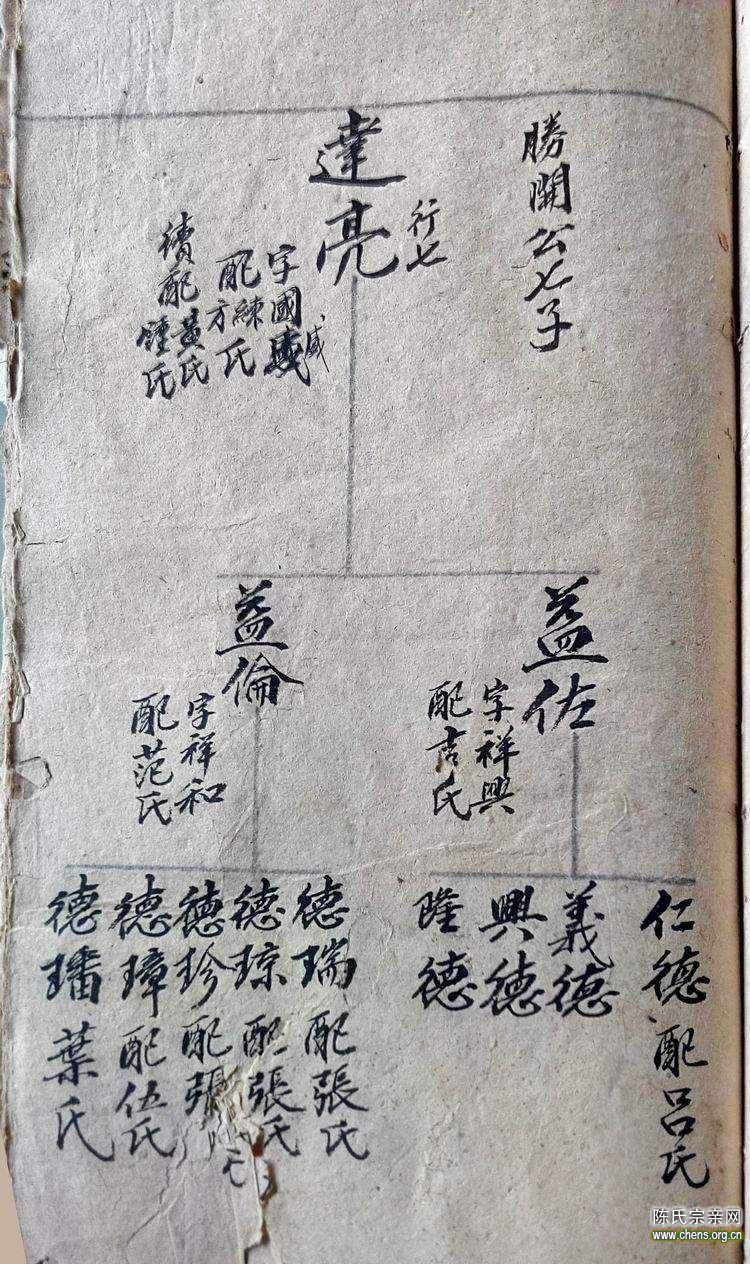 勝開公七子
達亮
行七
字國
配練氏
方氏
續配黃氏
鍾氏
益佐
字祥興
配吉氏
益倫
字祥和
配范氏
仁德 配呂氏
義德
興德
隆德
德瑞 配張氏
德琼 配張氏
德珍 配張氏
德璋 配伍氏
德璠 葉氏
陈氏宗亲网
www.chens.org.cn